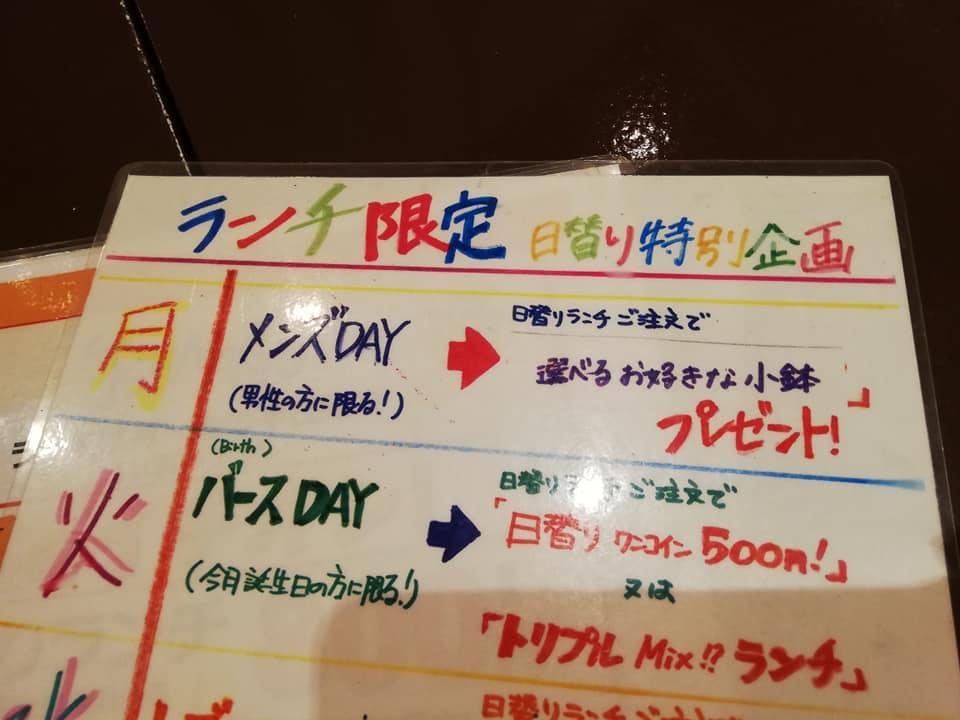 ランチ限定 日替り特別企画
月
メンズDAY
(男性の方に限る!)
日替りランチご注文で
選べるお好きな小鉢」
プレゼント!
火
(Birth)
バースDAY
(今月誕生日の方に限る!)
日替り ご注文で
「日替りワンコイン500円!」
又は
「トリプルMix!!ランチ」